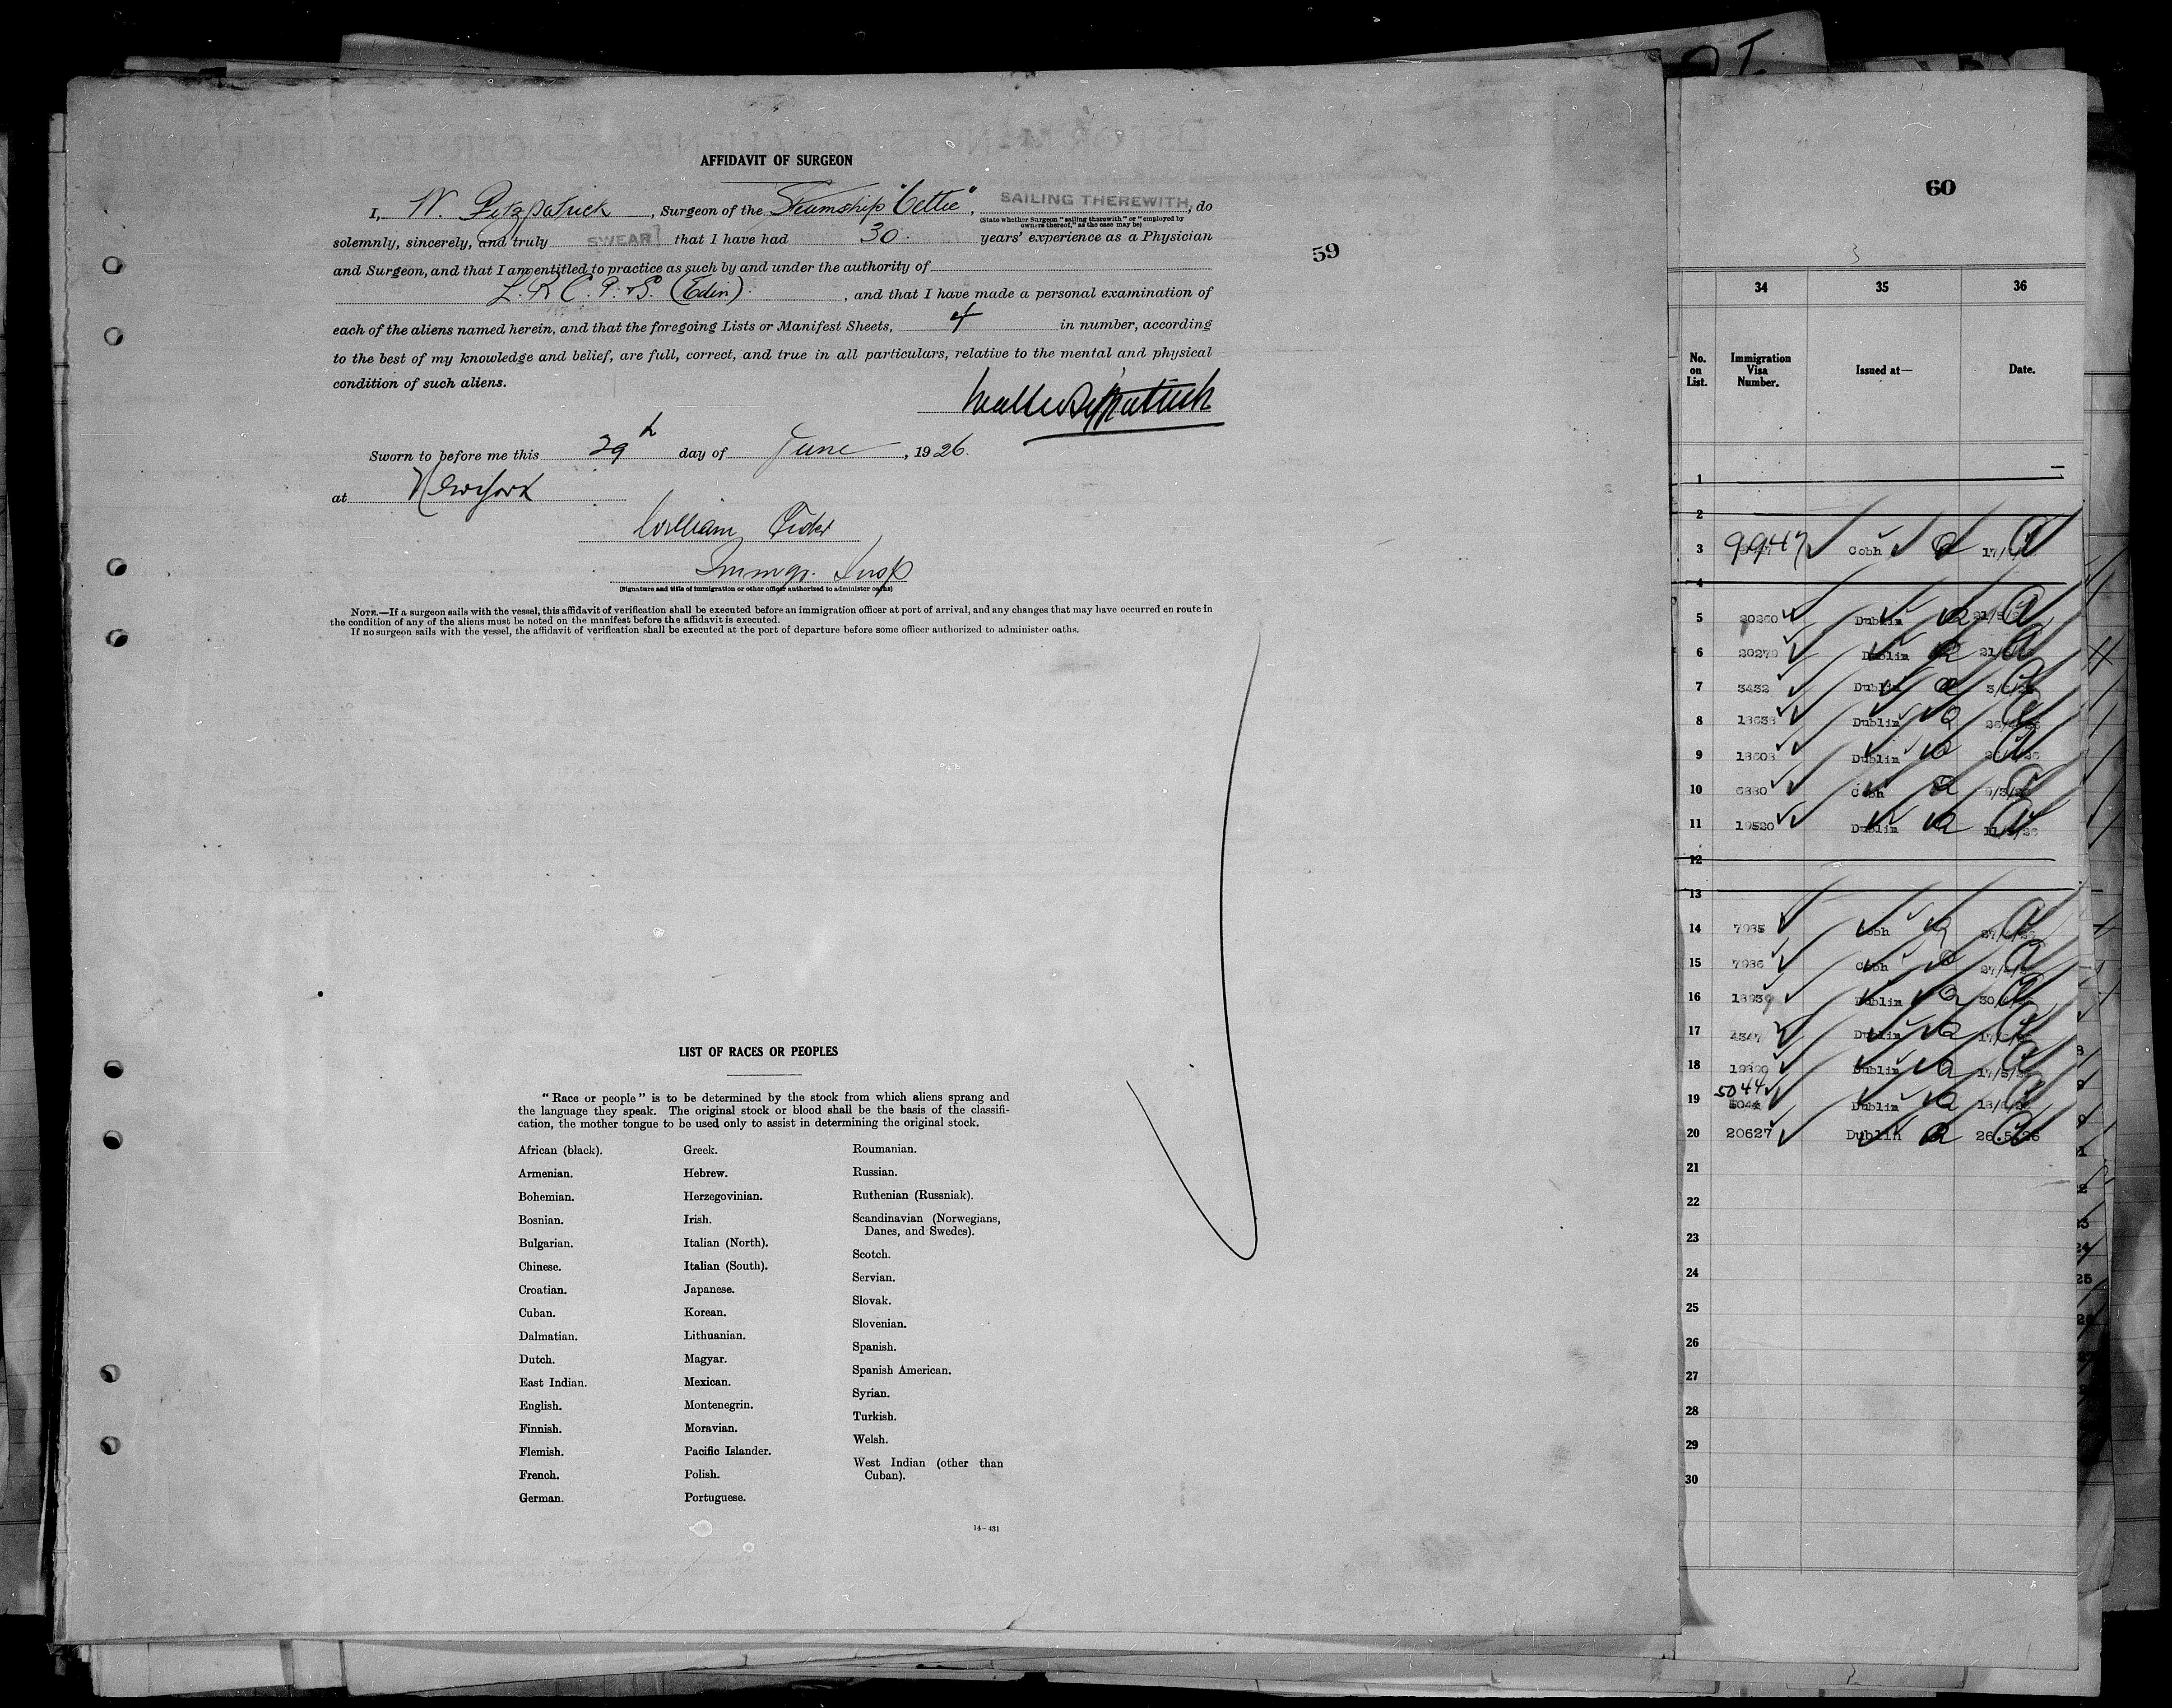 AFFIDAVIT OF SURGEON
I, W. Fitzpatrick, Surgeon of the Steamship "Celtic", SAILING THEREWITH, do
(State whether Surgeon "sailing therewith" or "employed by
owners thereof," as the case may be)
solemnly, sincerely, and truly SWEAR that I have had 30. years' experience as a Physician
and Surgeon, and that I am entitled to practice as such by and under the authority of
L. R. C. P. & S. (Edin). , and that I have made a personal examination of
each of the aliens named herein, and that the foregoing Lists or Manifest Sheets, 4 in number, according
to the best of my knowledge and belief, are full, correct, and true in all particulars, relative to the mental and physical
condition of such aliens.
Sworn to before me this 29th day of June, 1926.
at New York
William
Immgr. Insp
(Signature and title of immigration or other officer authorized to administer oaths)
NOTE.—If a surgeon sails with the vessel, this affidavit of verification shall be executed before an immigration officer at port of arrival, and any changes that may have occurred en route in
the condition of any of the aliens must be noted on the manifest before the affidavit is executed.
If no surgeon sails with the vessel, the affidavit of verification shall be executed at the port of departure before some officer authorized to administer oaths.
59
LIST OF RACES OR PEOPLES
"Race or people" is to be determined by the stock from which aliens sprang and
the language they speak. The original stock or blood shall be the basis of the classifi-
cation, the mother tongue to be used only to assist in determining the original stock.
African (black).
Armenian.
Bohemian.
Bosnian.
Bulgarian.
Chinese.
Croatian.
Cuban.
Dalmatian.
Dutch.
East Indian.
English.
Finnish.
Flemish.
French.
German.
Greek.
Hebrew.
Herzegovinian.
Irish.
Italian (North).
Italian (South).
Japanese.
Korean.
Lithuanian.
Magyar.
Mexican.
Montenegrin.
Moravian.
Pacific Islander.
Polish.
Portuguese.
Roumanian.
Russian.
Ruthenian (Russniak).
Scandinavian (Norwegians,
Danes, and Swedes).
Scotch.
Servian.
Slovak.
Slovenian.
Spanish.
Spanish American.
Syrian.
Turkish.
Welsh.
West Indian (other than
Cuban).
14—431
60
3
34 35 36
No. on List. Immigration Visa Number. Issued at— Date.
1
2
3 9947 Cobh 17/
4
5 20260 Dublin 21/5/
6 20270 Dublin 21/
7 3432 Dublin 3/
8 13633 Dublin
9 13603 Dublin
10 6330 Cobh 9/3/
11 19520 Dublin 11/
12
13
14 7935 Cobh 27/
15 7936 Cobh 27/
16 Dublin 30/
17 4347 Dublin 17/
18 Dublin 17/5/
19 5044 Dublin 13/
20 20627 Dublin 26.5.26
21
22
23
24
25
26
27
28
29
30